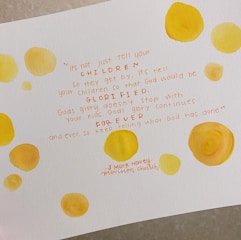 "its not just tell your
CHILDREN
so they get by, its tell
your children so that God would be
GLORIFIED.
Gods glory doesn't stop with
your kids, Gods glory continues
FOREVER
and ever to keep telling what God has done"